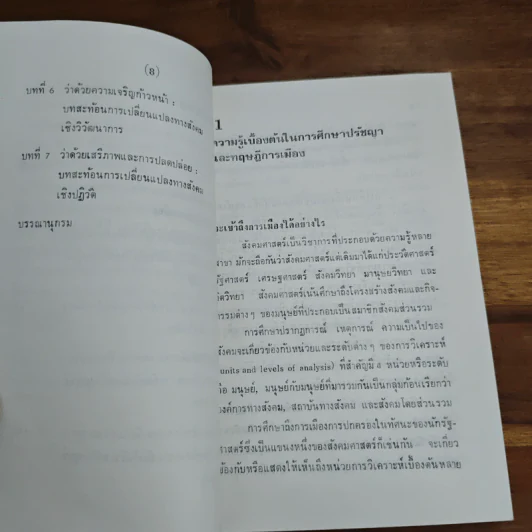 (8)
บทที่ 6 ว่าด้วยความเจริญก้าวหน้า :
บทสะท้อนการเปลี่ยนแปลงทางสังคม
เชิงวิวัฒนาการ
บทที่ 7 ว่าด้วยเสรีภาพและการปลดปล่อย :
บทสะท้อนการเปลี่ยนแปลงทางสังคม
เชิงปฏิวัติ
บรรณานุกรม
1
ความรู้เบื้องต้นในการศึกษาปรัชญา
และทฤษฎีการเมือง
จะเข้าถึงการเมืองได้อย่างไร
สังคมศาสตร์เป็นวิชาการที่ประกอบด้วยความรู้หลาย
สาขา มักจะถือกันว่าสังคมศาสตร์แต่เดิมมาได้แก่ประวัติศาสตร์
รัฐศาสตร์ เศรษฐศาสตร์ สังคมวิทยา มานุษยวิทยา และ
จิตวิทยา สังคมศาสตร์เน้นศึกษาถึงโครงสร้างสังคมและกิจ-
กรรมต่าง ๆ ของมนุษย์ที่ประกอบเป็นสมาชิกสังคมส่วนรวม
การศึกษาปรากฏการณ์ เหตุการณ์ ความเป็นไปของ
สังคมจะเกี่ยวข้องกับหน่วยและระดับต่าง ๆ ของการวิเคราะห์
(units and levels of analysis) ที่สำคัญมี 4 หน่วยหรือระดับ
คือ มนุษย์, มนุษย์กับมนุษย์ที่มารวมกันเป็นกลุ่มก้อนเรียกว่า
องค์การทางสังคม, สถาบันทางสังคม และสังคมโดยส่วนรวม
การศึกษาถึงการเมืองการปกครองในทัศนะของนักรัฐ-
ศาสตร์ซึ่งเป็นแขนงหนึ่งของสังคมศาสตร์ก็เช่นกัน จะเกี่ยว
ข้องกับหรือแสดงให้เห็นถึงหน่วยการวิเคราะห์เบื้องต้นหลาย